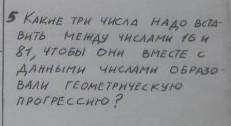 5 КАКИЕ ТРИ ЧИСЛА НАДО ВСТА-
ВИТЬ МЕЖДУ ЧИСЛАМИ 16 И
81, ЧТОБЫ ОНИ ВМЕСТЕ С
ДАННЫМИ ЧИСЛАМИ ОБРАЗО-
ВАЛИ ГЕОМЕТРИЧЕСКУЮ
ПРОГРЕССИЮ?